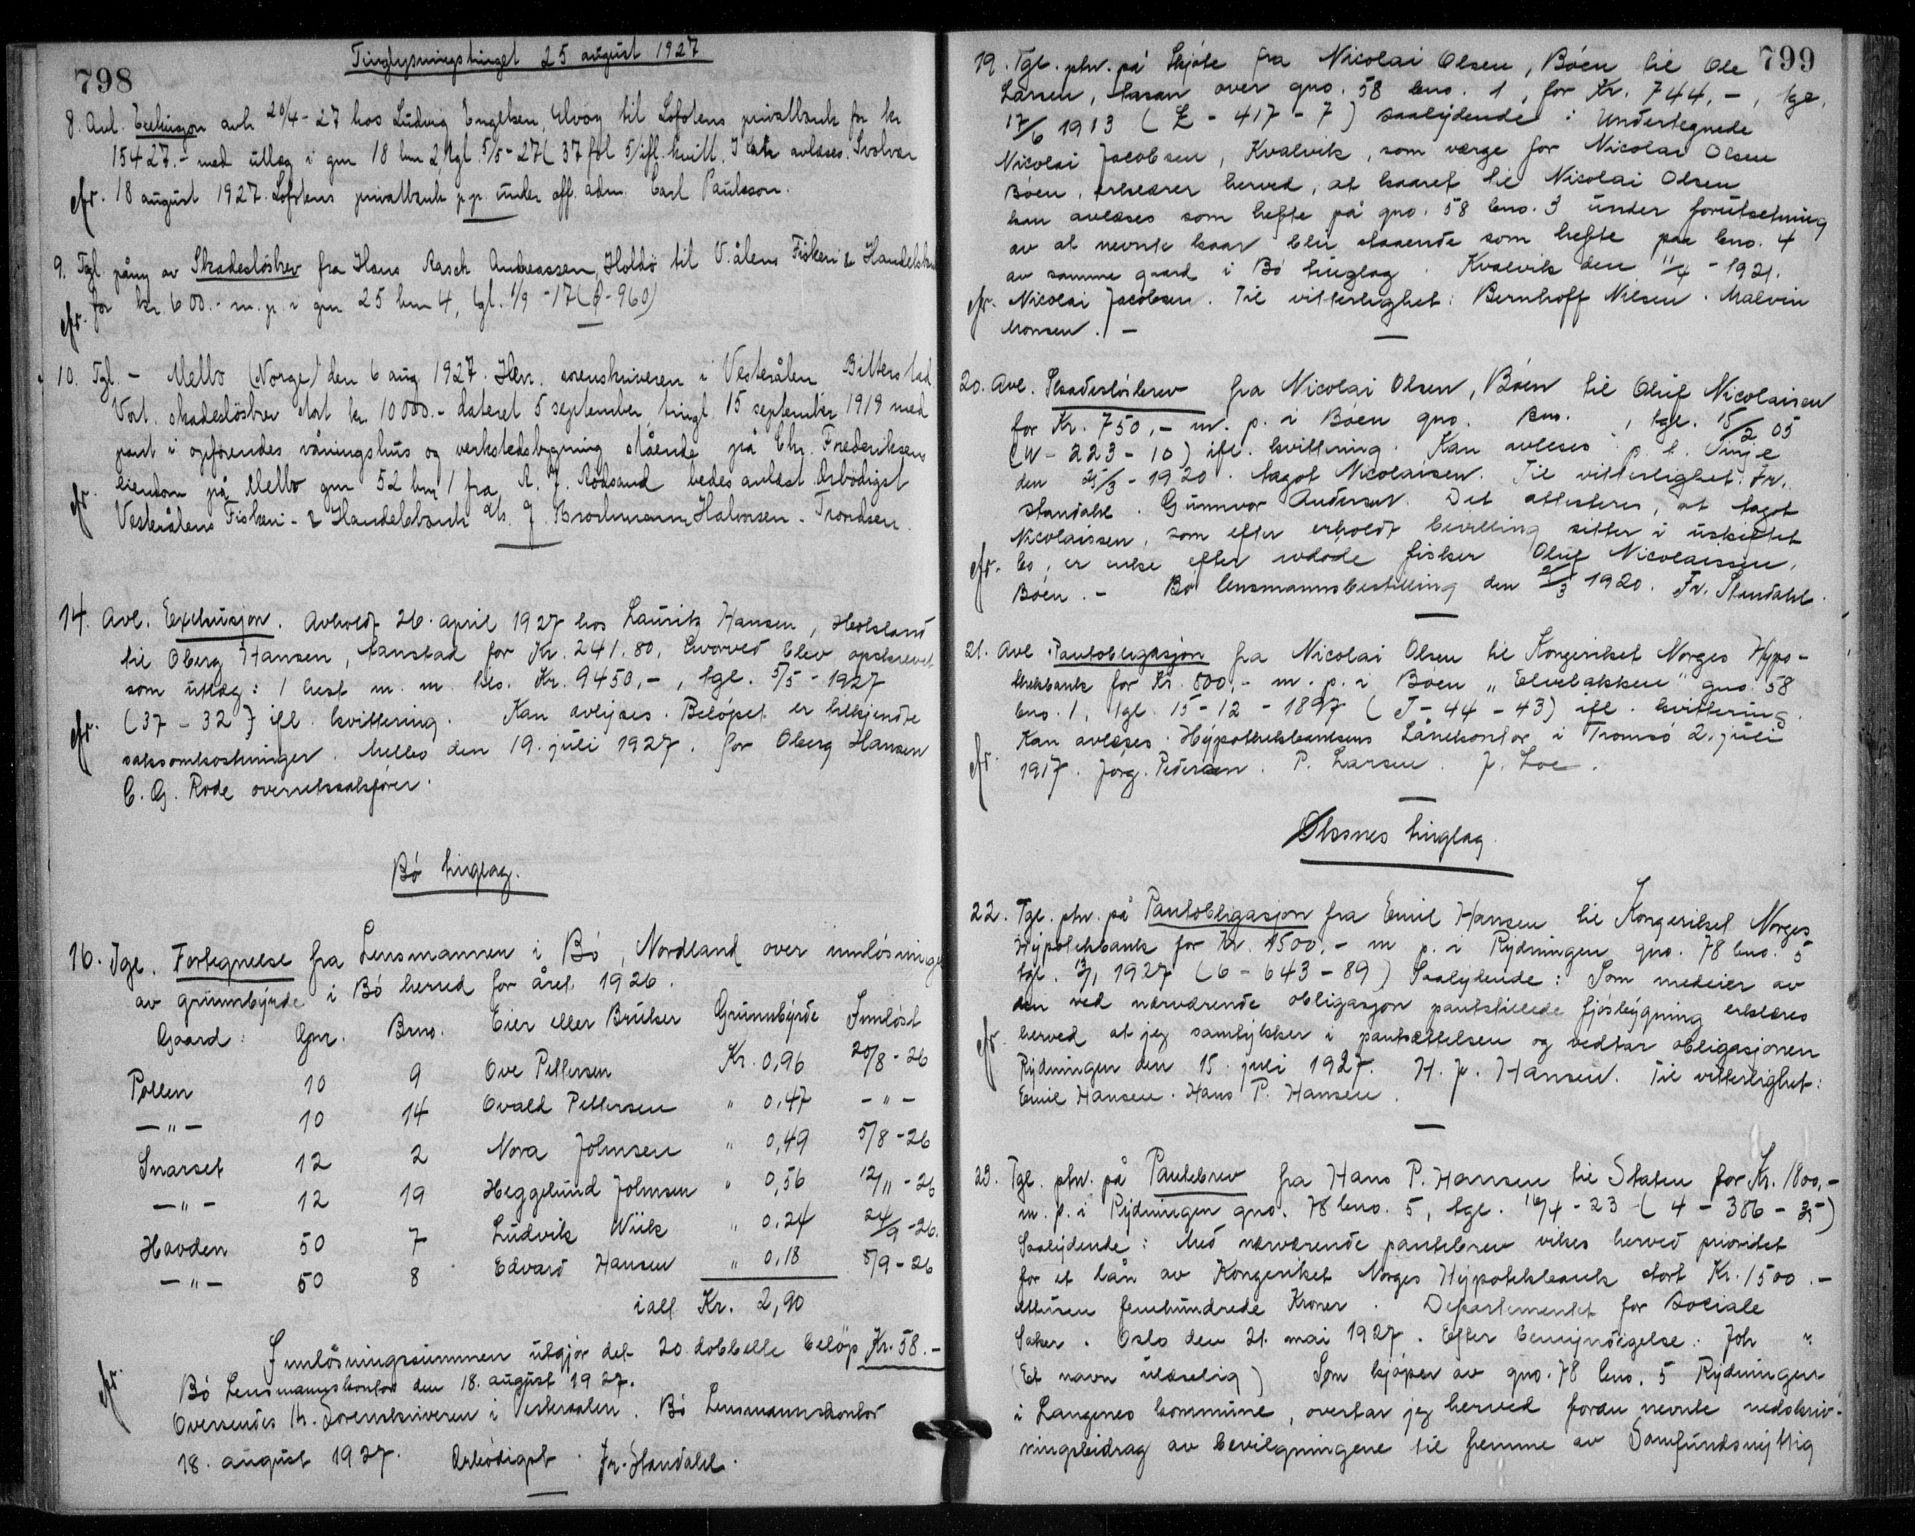 798
Tinglysningstinget 25 august 1927
8. Avl. Exekusjon avh 20/4-27 hos Ludvig Engelsen, Elvøy til Lofotens privatbank for kr
15427.- med utlæg i gnr 18 bnr 2 tgl 5/5-27 (37 fol 5) ifl. kvitt. Kan avlæses. Svolvær
cfr. 18 august 1927. Lofotens privatbank p.p. under off. adm. Carl Paulsson.
9. Tgl påny av Skadesløsbrev fra Hans Rasch Andreassen, Holdö til V.ålens Fiskeri & Handelsbank
cfr. for kr 600.- m.p. i gnr 25 bnr 4, tgl. 1/9-17 (φ-960)
10. Tgl. - Melbo (Norge) den 6 aug. 1927. Herr. sorenskriveren i Vesterålen Bitterstad
Vort skadesløsbrev stort kr. 10000.- dateret 5 september, tingl. 15 september 1919 med
pant i opførendes våningshus og verkstedsbygning stående på Chr. Frederiksens
eiendom på Melbo gnr 52 bnr 1 fra R. J. Rødsand bedes avlæst. Ærbødigst
cfr Vesterålens Fiskeri- & Handelsbank A/s. J. Brochmann Halvorsen - Trondsen.
14. Avl. Exekusjon. Avholdt 26. april 1927 hos Laurits Hansen, Hedsland
til Oberg Hansen, Tanstad for Kr. 241.80, hvorved blev opskrevet
som utlæg: 1 hest m. m. tils. Kr. 9450,-, tgl. 5/5-1927
cfr. (37-32) ifl. kvittering. Kan avlyses. Beløpet er tilkjendte
saksomkostninger. Melbo den 19. juli 1927. for Oberg Hansen
C. G. Rode overretssakfører.
Bó tinglag.
16. Tgl. Fortegnelse fra Lensmannen i Bó, Nordland over innløsninge
av grunnbyrde i Bó herred for året 1926.
Gaard: Gnr. Brno. Eier eller Bruker Grunnbyrde Innløst
Pollen 10 9 Ove Pettersen Kr. 0,96 20/8-26
-"- 10 14 Ovald Pettersen " 0,47 -"-
Snarset 12 2 Nora Johnsen " 0,49 5/8-26
-"- 12 19 Heggelund Johnsen " 0,56 12/11-26
Hovden 50 7 Ludvik Wiik " 0,24 24/9-26.
-"- 50 8 Edvard Hansen " 0,18 5/9-26
ialt Kr. 2,90
Innløsningssummen utgjør det 20 dobbelte beløp Kr. 58.-
cfr. Bó Lensmannskontor den 18. august 1927.
Oversendes Hr. Sorenskriveren i Vesteraalen. Bó Lensmannskontor
18. august 1927. Ærbødigst. Fr. Standahl.
799
19. Tgl. ptn. på Skjøte fra Nicolai Olsen, Bóen til Ole
Larsen, over gno. 58 bno. 1, for Kr. 744,-, tgl.
17/6 1913 (Æ-417-7) saalydende: Undertegnede
Nicolai Jacobsen, Kvalvik, som værge for Nicolai Olsen
Bóen, erklærer herved, at kaaret til Nicolai Olsen
kan avlæses som hefte på gno. 58 bno. 3 under forutsetning
av at nevnte kaar blir staaende som hefte paa bno. 4
av samme gaard i Bó tinglag. Kvalvik den 11/4-1921.
cfr. Nicolai Jacobsen. Til vitterlighet: Bernhoff Nilsen. Malvin
Monsen. -
20. Avl. Skadesløsbrev fra Nicolai Olsen, Bóen til Oluf Nicolaisen
for Kr. 750,- m. p. i Bóen gno. Bno. , tgl. 15/2 05
(W-223-10) ifl. kvittering. Kan avleses p. t. Vinje
den 25/3-1920. Hagot Nicolaisen. Til vitterlighet: Fr.
Standahl. Gunnvor Andersen. Det attesteres, at Hagot
Nicolaissen, som efter erholdt bevilling sitter i uskiftet
cfr. bo, er enke efter avdøde fisker Oluf Nicolaissen,
Bóen. - Bó lensmannsbestilling den 25/3 1920. Fr. Standahl.
21. Avl. Pantobligasjon fra Nicolai Olsen til Kongeriket Norges Hypo-
thekbank for Kr. 800,- m. p. i Boen "Elvebakken" gno. 58
bno. 1, tgl. 15-12-1897 (T-44-43) ifl. kvittering.
Kan avlæses. Hypothekbankens Lånekontor i Tromsö 2. juli
cfr. 1917. Jørg. Pedersen. P. Larsen. J. Loe.
Øksnes tinglag.
22. Tgl. ptn. på Pantobligasjon fra Emil Hansen til Kongeriket Norges
Hypothekbank for Kr. 1500,- m p. i Rydningen gno. 78 bno. 5
tgl. 13/1 1927 (6-643-89) Saalydende: Som medeier av
den ved nærværende obligasjon pantstillede fjósbygning erklæres
cfr. herved at jeg samtykker i pantsættelsen og vedtar obligasjonen
Rydningen den 15. juli 1927. H. P. Hansen. Til vitterlighet:
Emil Hansen. Hans P. Hansen.
23. Tgl. ptn. på Pantebrev fra Hans P. Hansen til Staten for Kr. 1800,-
m. p. i Rydningen gno. 78 bno. 5, tgl. 16/4-23 (4-386-25)
Saalydende: Med nærværende pantebrev vikes herved prioritet
for et lån av Kongeriket Norges Hypothekbank stort Kr. 1500.-
ettusen femhundrede Kroner. Departementet for Sociale
Saker. Oslo den 21. mai 1927. Efter bemyndigelse: Joh "
(Et navn ulæselig) Som kjøper av gno. 78 bno. 5 Rydningen
i Langenes kommune, overtar jeg herved foran nevnte nedskriv-
ningsbidrag av bevilgningene til fremme av Samfundsnyttig